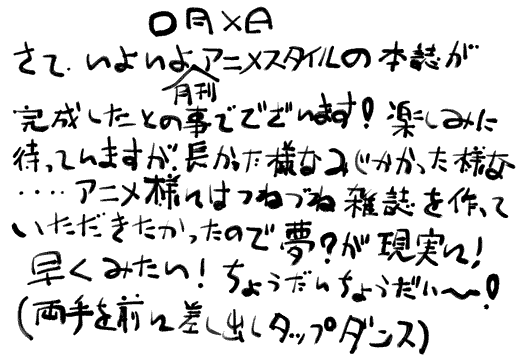 〇月×日
さて、いよいよ月刊アニメスタイルの本誌が
完成したとの事でございます！楽しみに
待っていますが、長かった様なみじかかった様な
‥‥アニメ様にはつねづね雑誌を作って
いただきたかったので夢？が現実に！
早くみたい！ちょうだいちょうだい〜！
（両手を前に差し出しタップダンス）